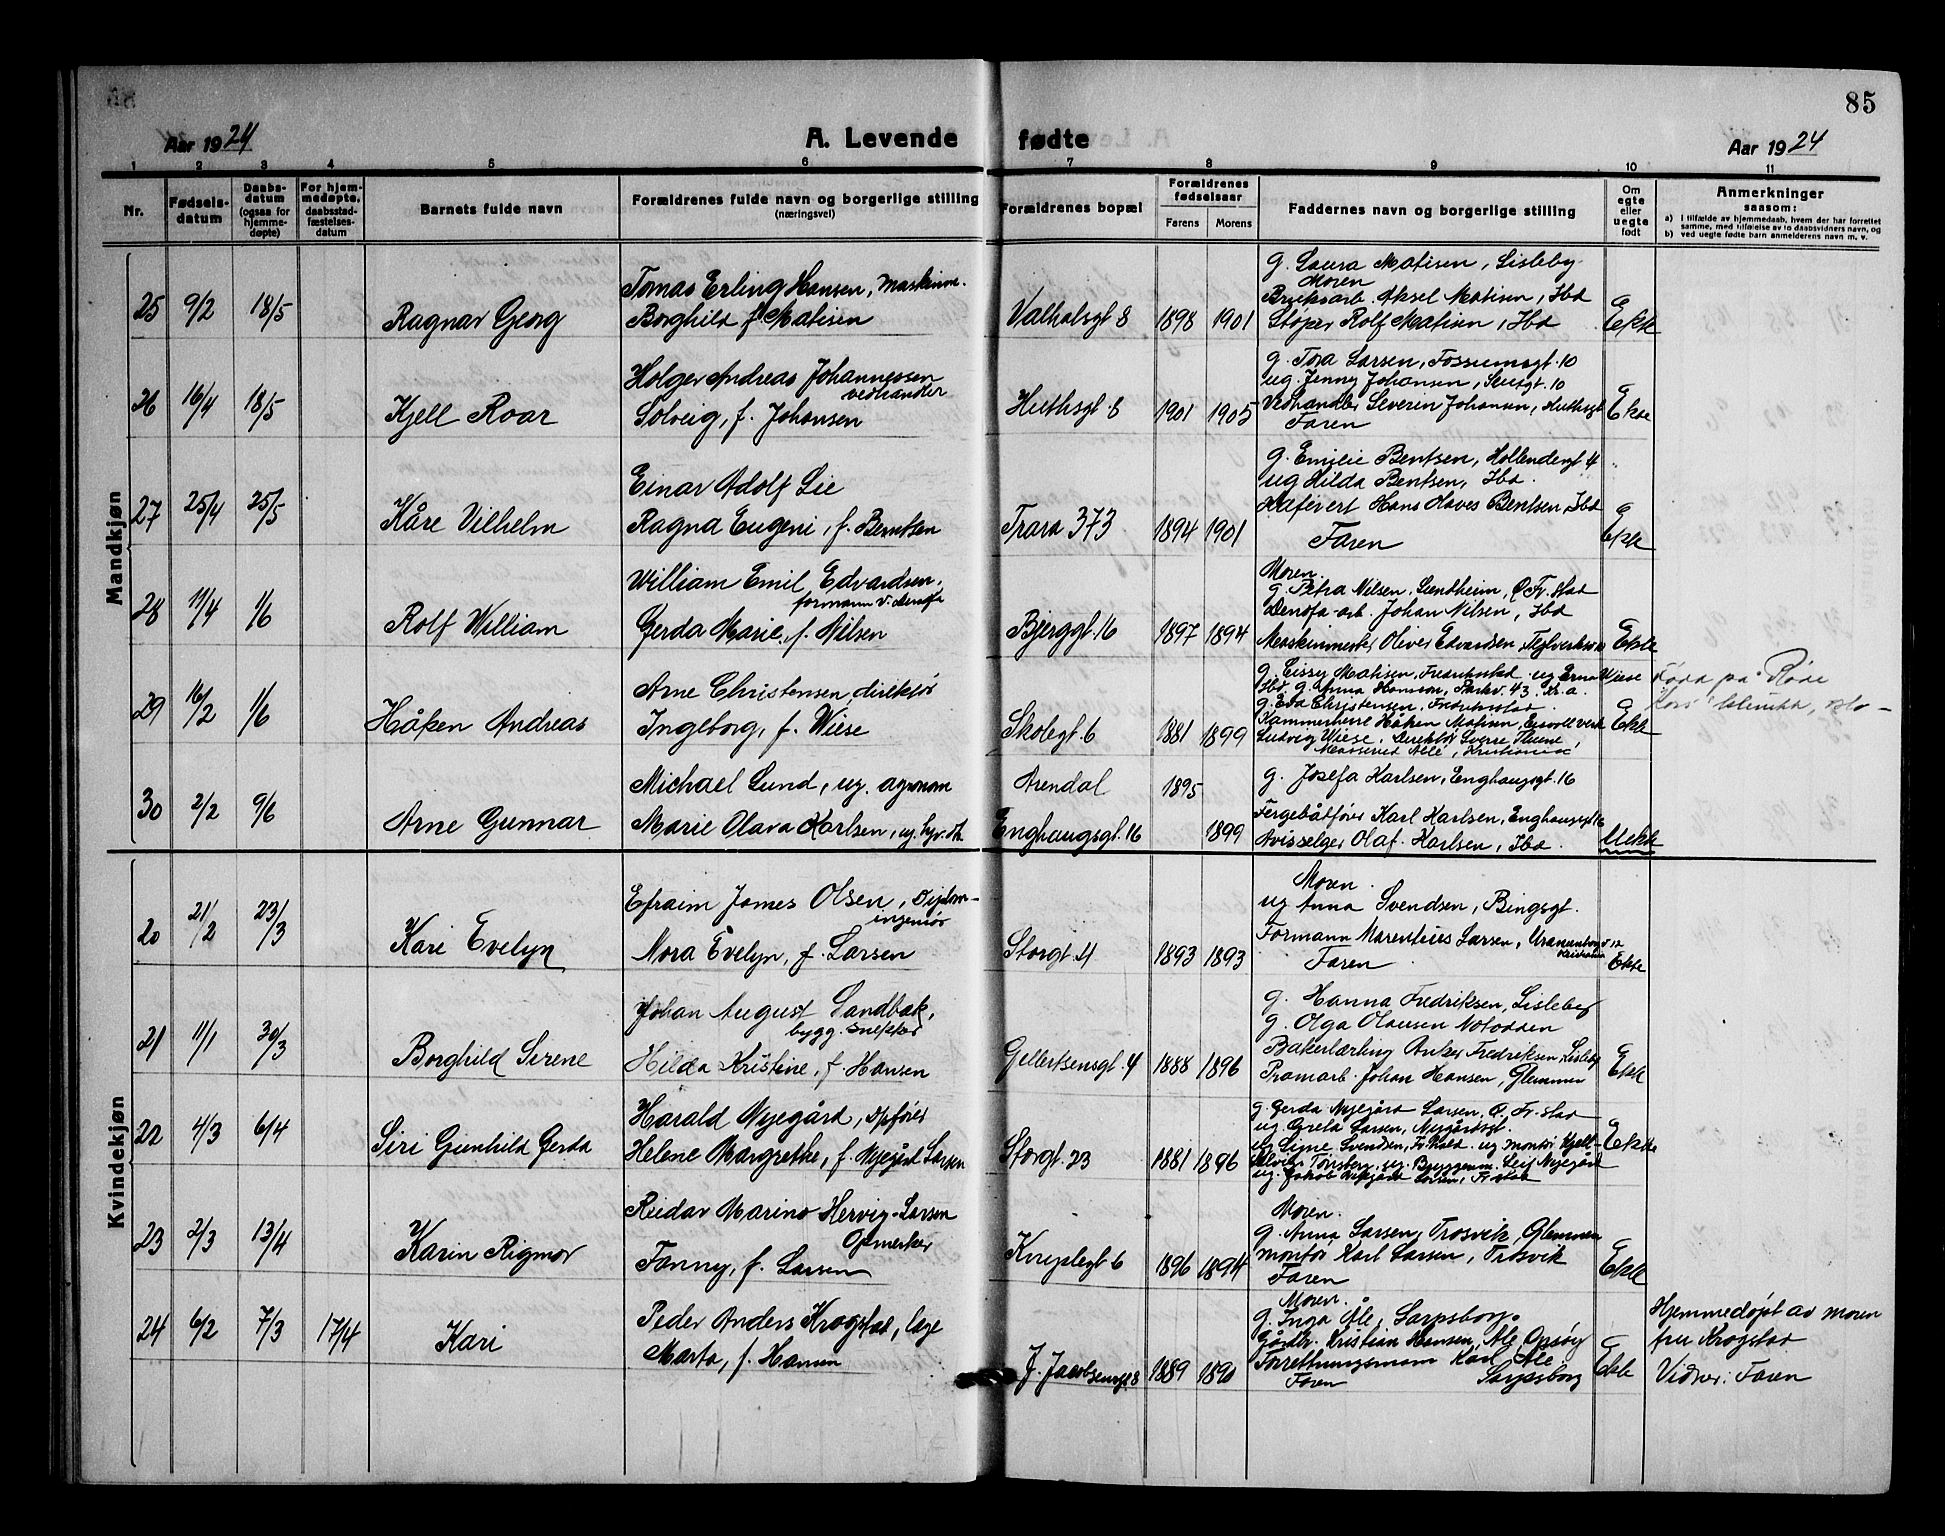 85
Aar 1924
A. Levende fødte
Aar 1924
1 2 3 4 5 6 7 8 9 10 11
Nr.
Fødsels-datum
Daabs-datum (ogsaa for hjemme-døpte)
For hjem-medøpte, daabsstad-fæstelses-datum
Barnets fulde navn
Forældrenes fulde navn og borgerlige stilling (næringsvei)
Forældrenes bopæl
Forældrenes fødselsaar
Farens Morens
Faddernes navn og borgerlige stilling
Om egte eller uegte født
Anmerkninger saasom:
a) I tilfælde av hjemmedaab, hvem der har forrettet samme, med tilføielse av to daabsvidners navn, og
b) ved uegte fødte barn anmelderens navn m. v.
Mandkjøn
25 9/2 18/5 Ragnar Georg
Tomas Erling Hansen, maskinm.
Borghild f. Matisen
Valhalsgt 8 1898 1901
g. Laura Matisen, Lisleby
Moren
Bruksarb. Aksel Matisen, Ibd
Støper Rolf Matisen, Ibd
Ekte
26 16/4 18/5 Kjell Roar
Holger Andreas Johannessen
vedhandler
Solveig, f. Johansen
Huthsgt 8 1901 1905
g. Tora Larsen, Fossumsgt. 10
ug. Jenny Johansen, 10
Vedhandler Severin Johansen, Huthsgt
Faren
Ekte
27 25/4 25/5 Kåre Vilhelm
Einar Adolf Lie
Ragna Eugeni, f. Berntsen
Trara 373 1894 1901
g. Emilie Bentsen, Hollendergt 4
ug Hilda Bentsen, Ibd.
Hans Bentsen, Ibd
Faren
Ekte
28 11/4 1/6 Rolf William
William Emil Edvardsen,
formann v. Denofa
Gerda Marie, f. Nilsen
Bjerggt. 16 1897 1894
Moren.
g. Petra Nilsen, Sundheim, Ø. Fr.stad
Denofa-arb. Johan Nilsen, Ibd
Maskinmester Oliver Edvardsen,
Ekte
29 16/2 1/6 Håken Andreas
Arne Christensen direktør
Ingeborg, f. Wiese
Skolegt. 6 1881 1899
g. Cissy Matisen, Fredrikstad ug Erna Wiese
Ibd. g. Anna Hansson, Parkv. 43, Kr.a.
g. Eva Christensen, Fredrikstad
Kammerherre Håken Matisen, Eidsvoll verk
Ludvig Wiese, Direktør Sverre Thune,
Allé, Kristiania
Ekte
Født på Røde
Kors' klinikk, Oslo -
30 2/2 9/6 Arne Gunnar
Michael Lund, ug. agronom
Marie Olava Karlsen, ug.
Arendal 1895
Enghaugsgt. 16 1899
g. Josefa Karlsen, Enghaugsgt. 16
Fergebåtfører Karl Karlsen, Enghaugsgt 16
Avisselger Olaf Karlsen, Ibd.
Uekte
Kvindekjøn
20 21/2 23/3 Kari Evelyn
Efraim James Olsen, Diplom-
ingeniør
Nora Evelyn, f. Larsen
Storgt. 4 1893 1893
Moren.
ug Anna Svendsen, Bingsgt.
Formann Marentius Larsen, Uranienborgv 12
Kristiania
Faren
Ekte
21 11/1 30/3 Borghild Serene
Johan August Sandbak,
bygg. snekker
Hilda Kristine, f. Hansen
Gilbertsensgt. 4 1888 1896
g. Hanna Fredriksen, Lisleby
g. Olga Olausen Notodden
Bakerlærling Anker Fredriksen Lisleby
Pramarb. Johan Hansen, Glemmen
Ekte
22 4/3 6/4 Siri Gunhild Gerda
Harald Nyegård, Opfører
Helene Margrethe, f. Nyegård Larsen
Storgt. 23 1881 1896
g. Gerda Nyegård Larsen. Ø. Fr.stad
ug. Greta Larsen, Nygårdsgt.
ug Signe Svendsen, Fr.hald. ug montør Kjell
Tønsberg. ug. Byggem. Leif Nyegård
ug. Jakob Nyegård Larsen, Fr.stad
Ekte
23 2/3 13/4 Karin Rigmor
Reidar Marino Hervig-Larsen
Opmerker
Fanny, f. Larsen
Kniplegt 6 1896 1894
Moren.
g. Anna Larsen, Trosvik, Glemmen
montør Karl Larsen, Trosvik
Faren
Ekte
24 6/2 7/3 17/4 Kari
Peder Anders Krogstad, læge
Marta, f. Hansen
J. Jacobsensgt 8 1889 1890
Moren.
g. Inga Åle, Sarpsborg.
Gårdbr. Kristian Hansen, Åle, Opsøy
Forretningsmann Karl Åle
Sarpsborg
Faren
Ekte
Hjemmedøpt av moren
fru Krogstad
Vidner: Faren